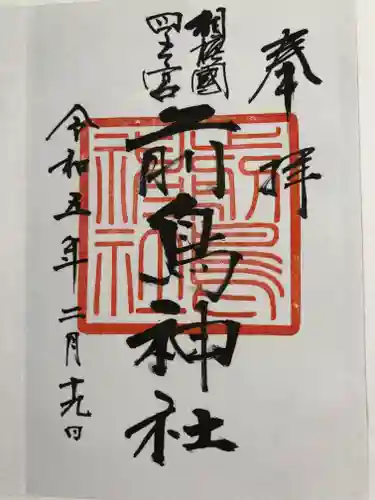 奉拝
相模國
四之宮
前鳥神社
令和五年二月十九日